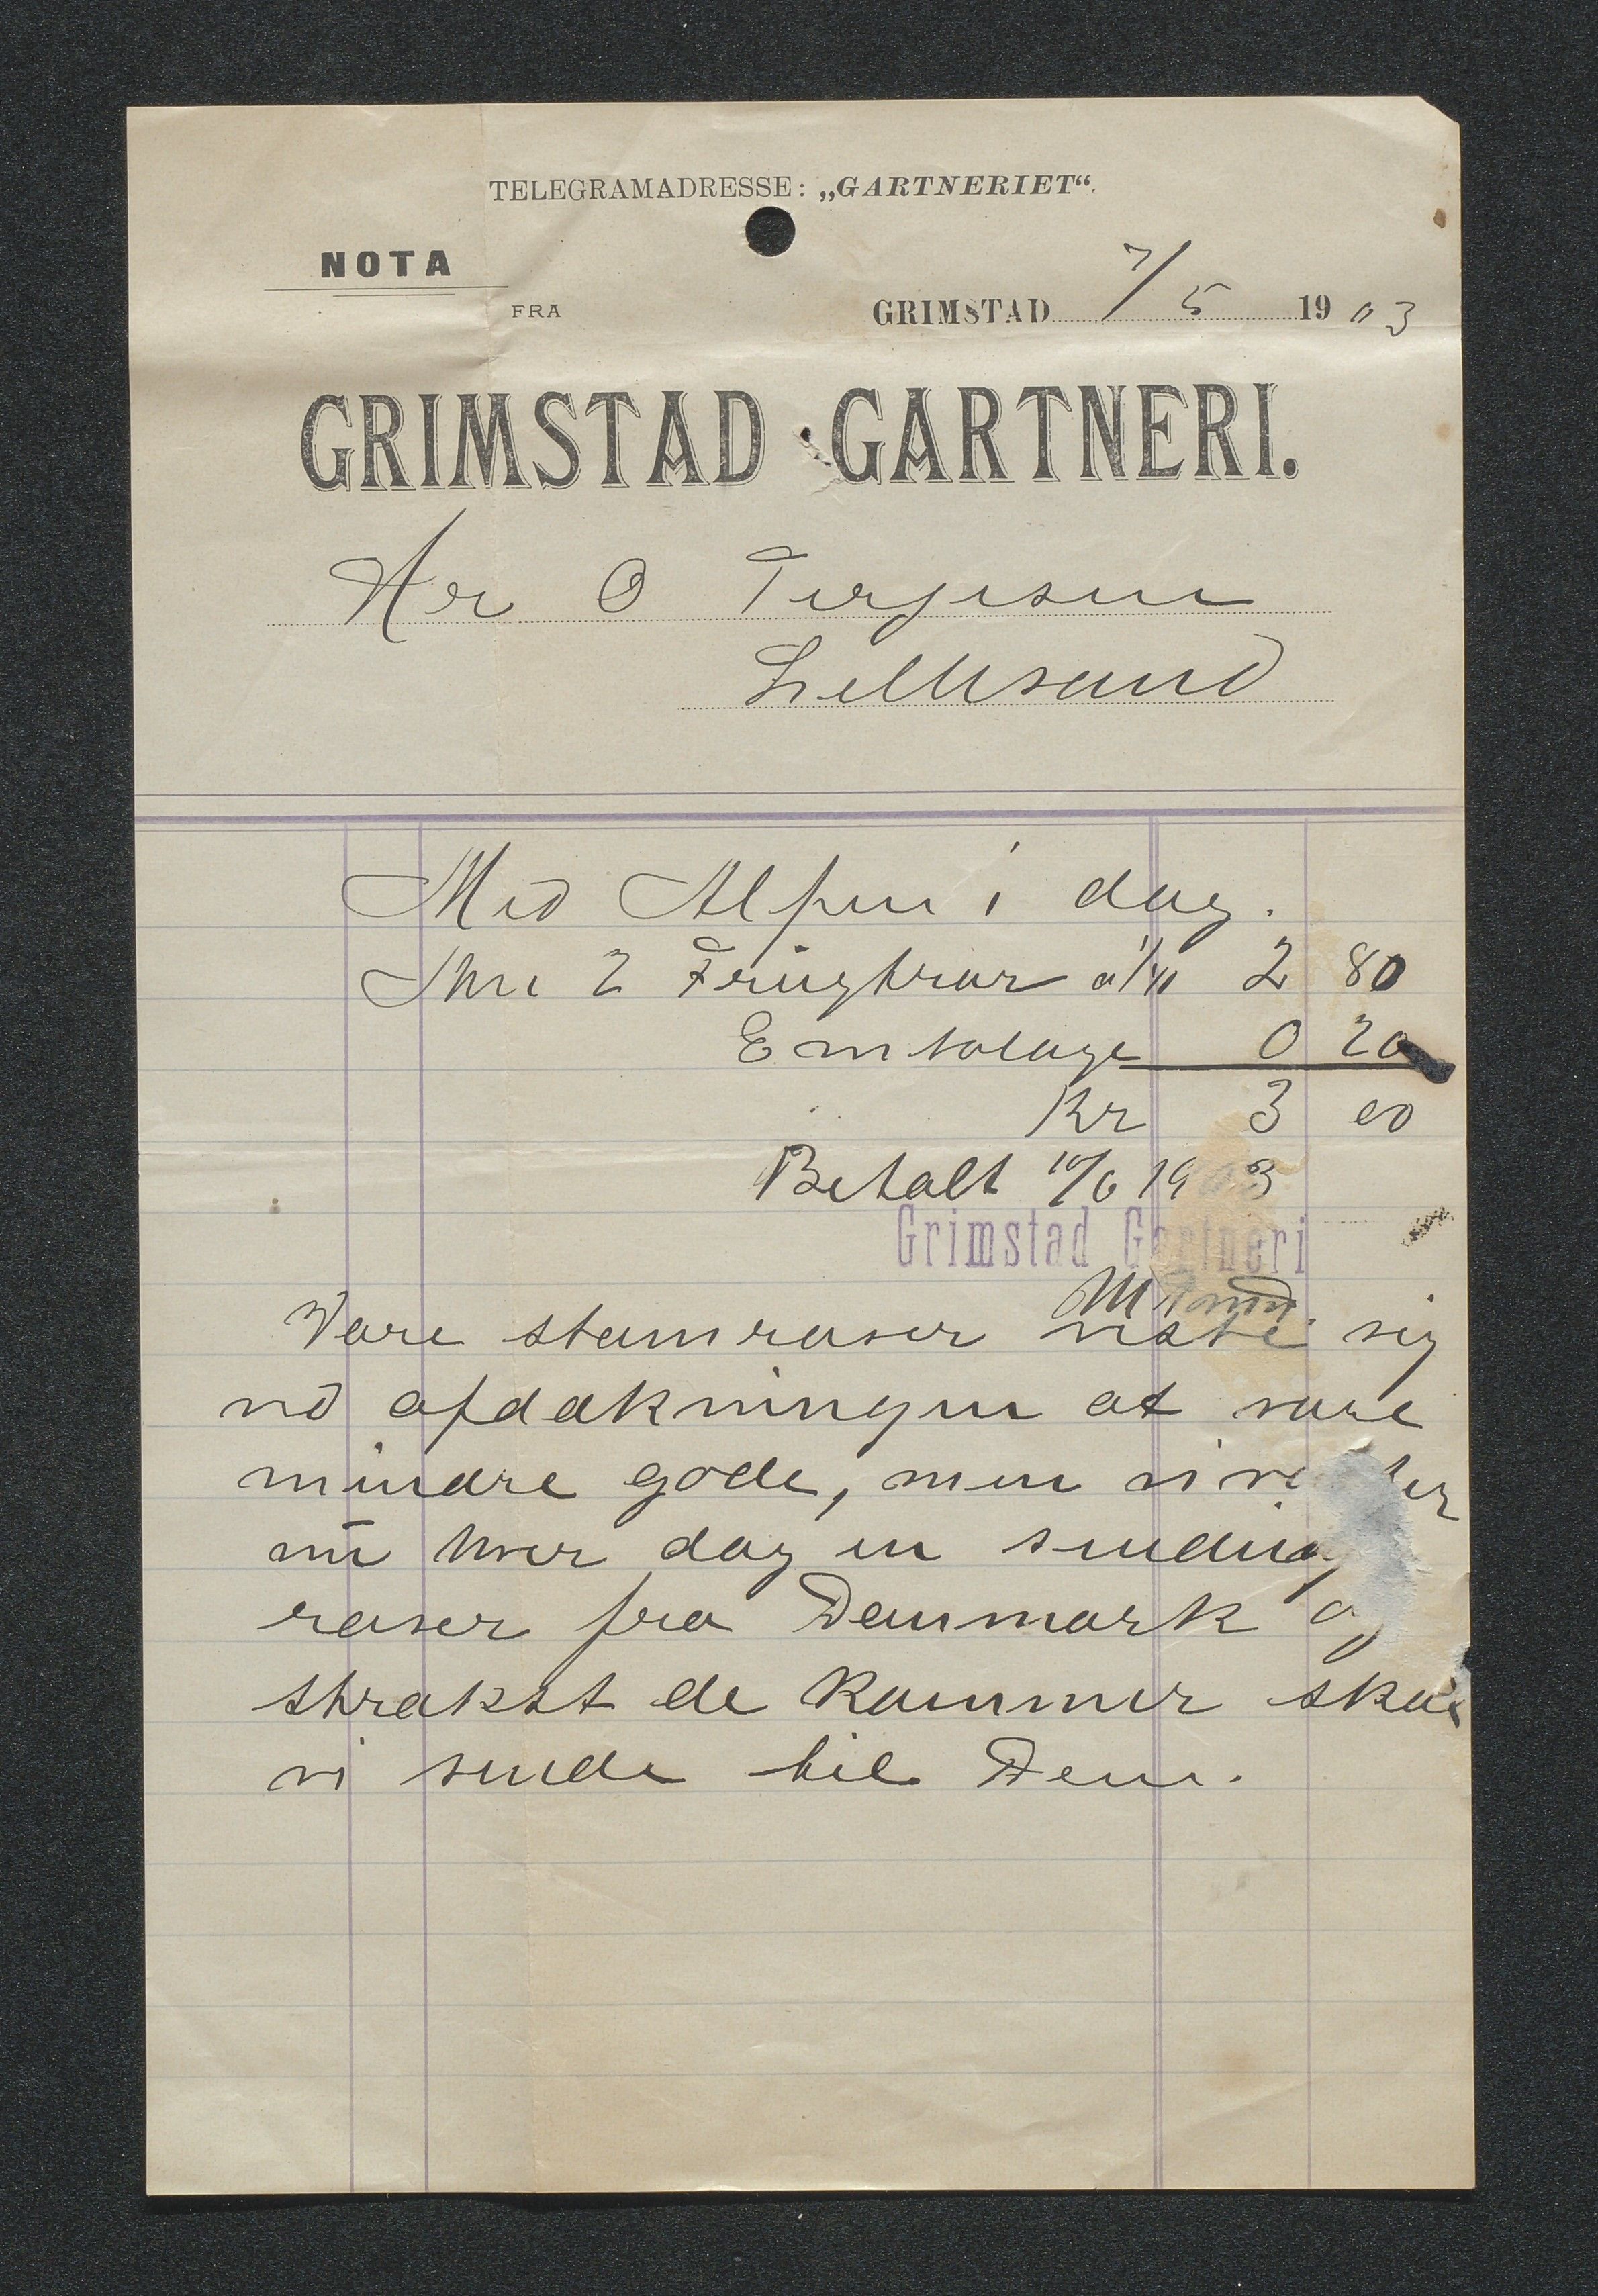 TELEGRAMADRESSE: „GARTNERIET“.
NOTA
FRA
GRIMSTAD 7/5 1903
GRIMSTAD GARTNERI.
Hr O Terjesen
Lillesand
Med Alfen i dag.
2 Frugttrær a 1/40 2 80
Embalage 0 20
Kr 3 00
Betalt 10/6 1903
Grimstad Gartneri
Vore stamroser viste sig
ved afdækningen at være
mindre gode, men vi
nu hver dag en sending
roser fra Danmark og
strakst de kommer skal
vi sende til Dem.